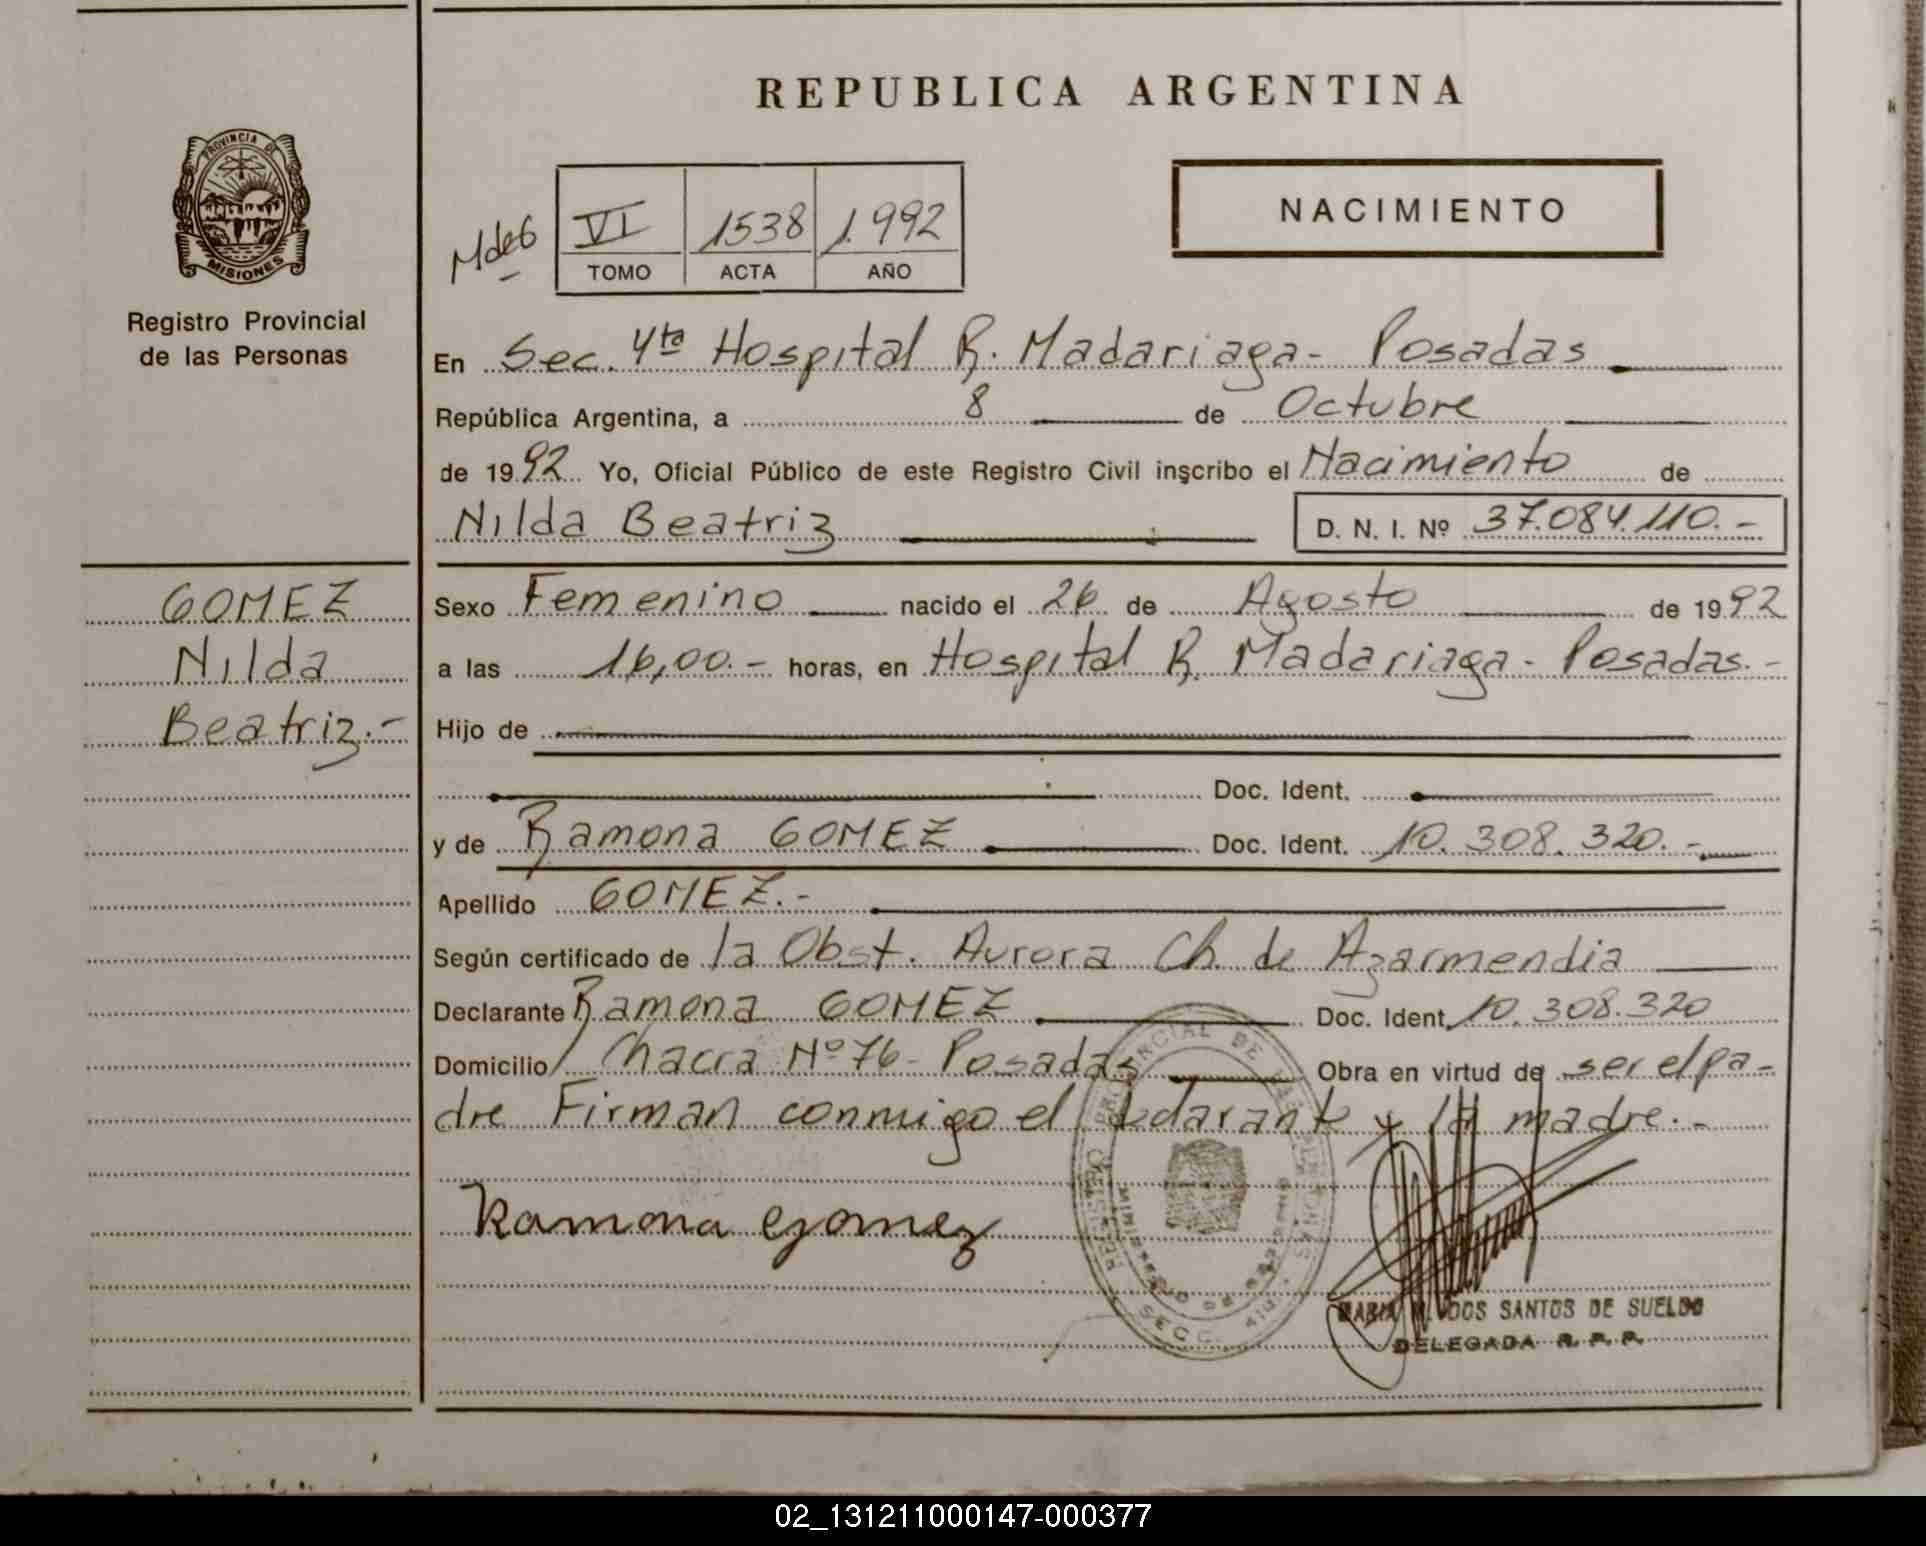 REPUBLICA ARGENTINA
PROVINCIA DE
MISIONES
Registro Provincial
de las Personas
NACIMIENTO
VI 1538 1.992
TOMO ACTA AÑO
En Sec. 4ta Hospital R. Madariaga - Posadas
República Argentina, a 8 de Octubre
de 1992 Yo, Oficial Público de este Registro Civil inscribo el Nacimiento de
Nilda Beatriz D. N. I. Nº 37.084.110.-
GOMEZ
Nilda
Beatriz.-
Sexo Femenino nacido el 26 de Agosto de 1992
a las 16,00.- horas, en Hospital R. Madariaga - Posadas.-
Hijo de
Doc. Ident.
y de Ramona GOMEZ Doc. Ident. 10.308.320.-
Apellido GOMEZ.-
Según certificado de la Obst. Aurora Ch. de Azarmendia
Declarante Ramona GOMEZ Doc. Ident. 10.308.320
Domicilio Chacra Nº 76 - Posadas Obra en virtud de ser el pa-
dre Firman conmigo el declarante y la madre.-
Ramona Gomez
MARIA M. DOS SANTOS DE SUELDO
DELEGADA R. P. P.
02_131211000147-000377